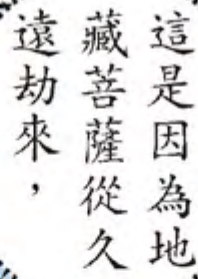 這是因為地
藏菩薩從久
遠劫來，